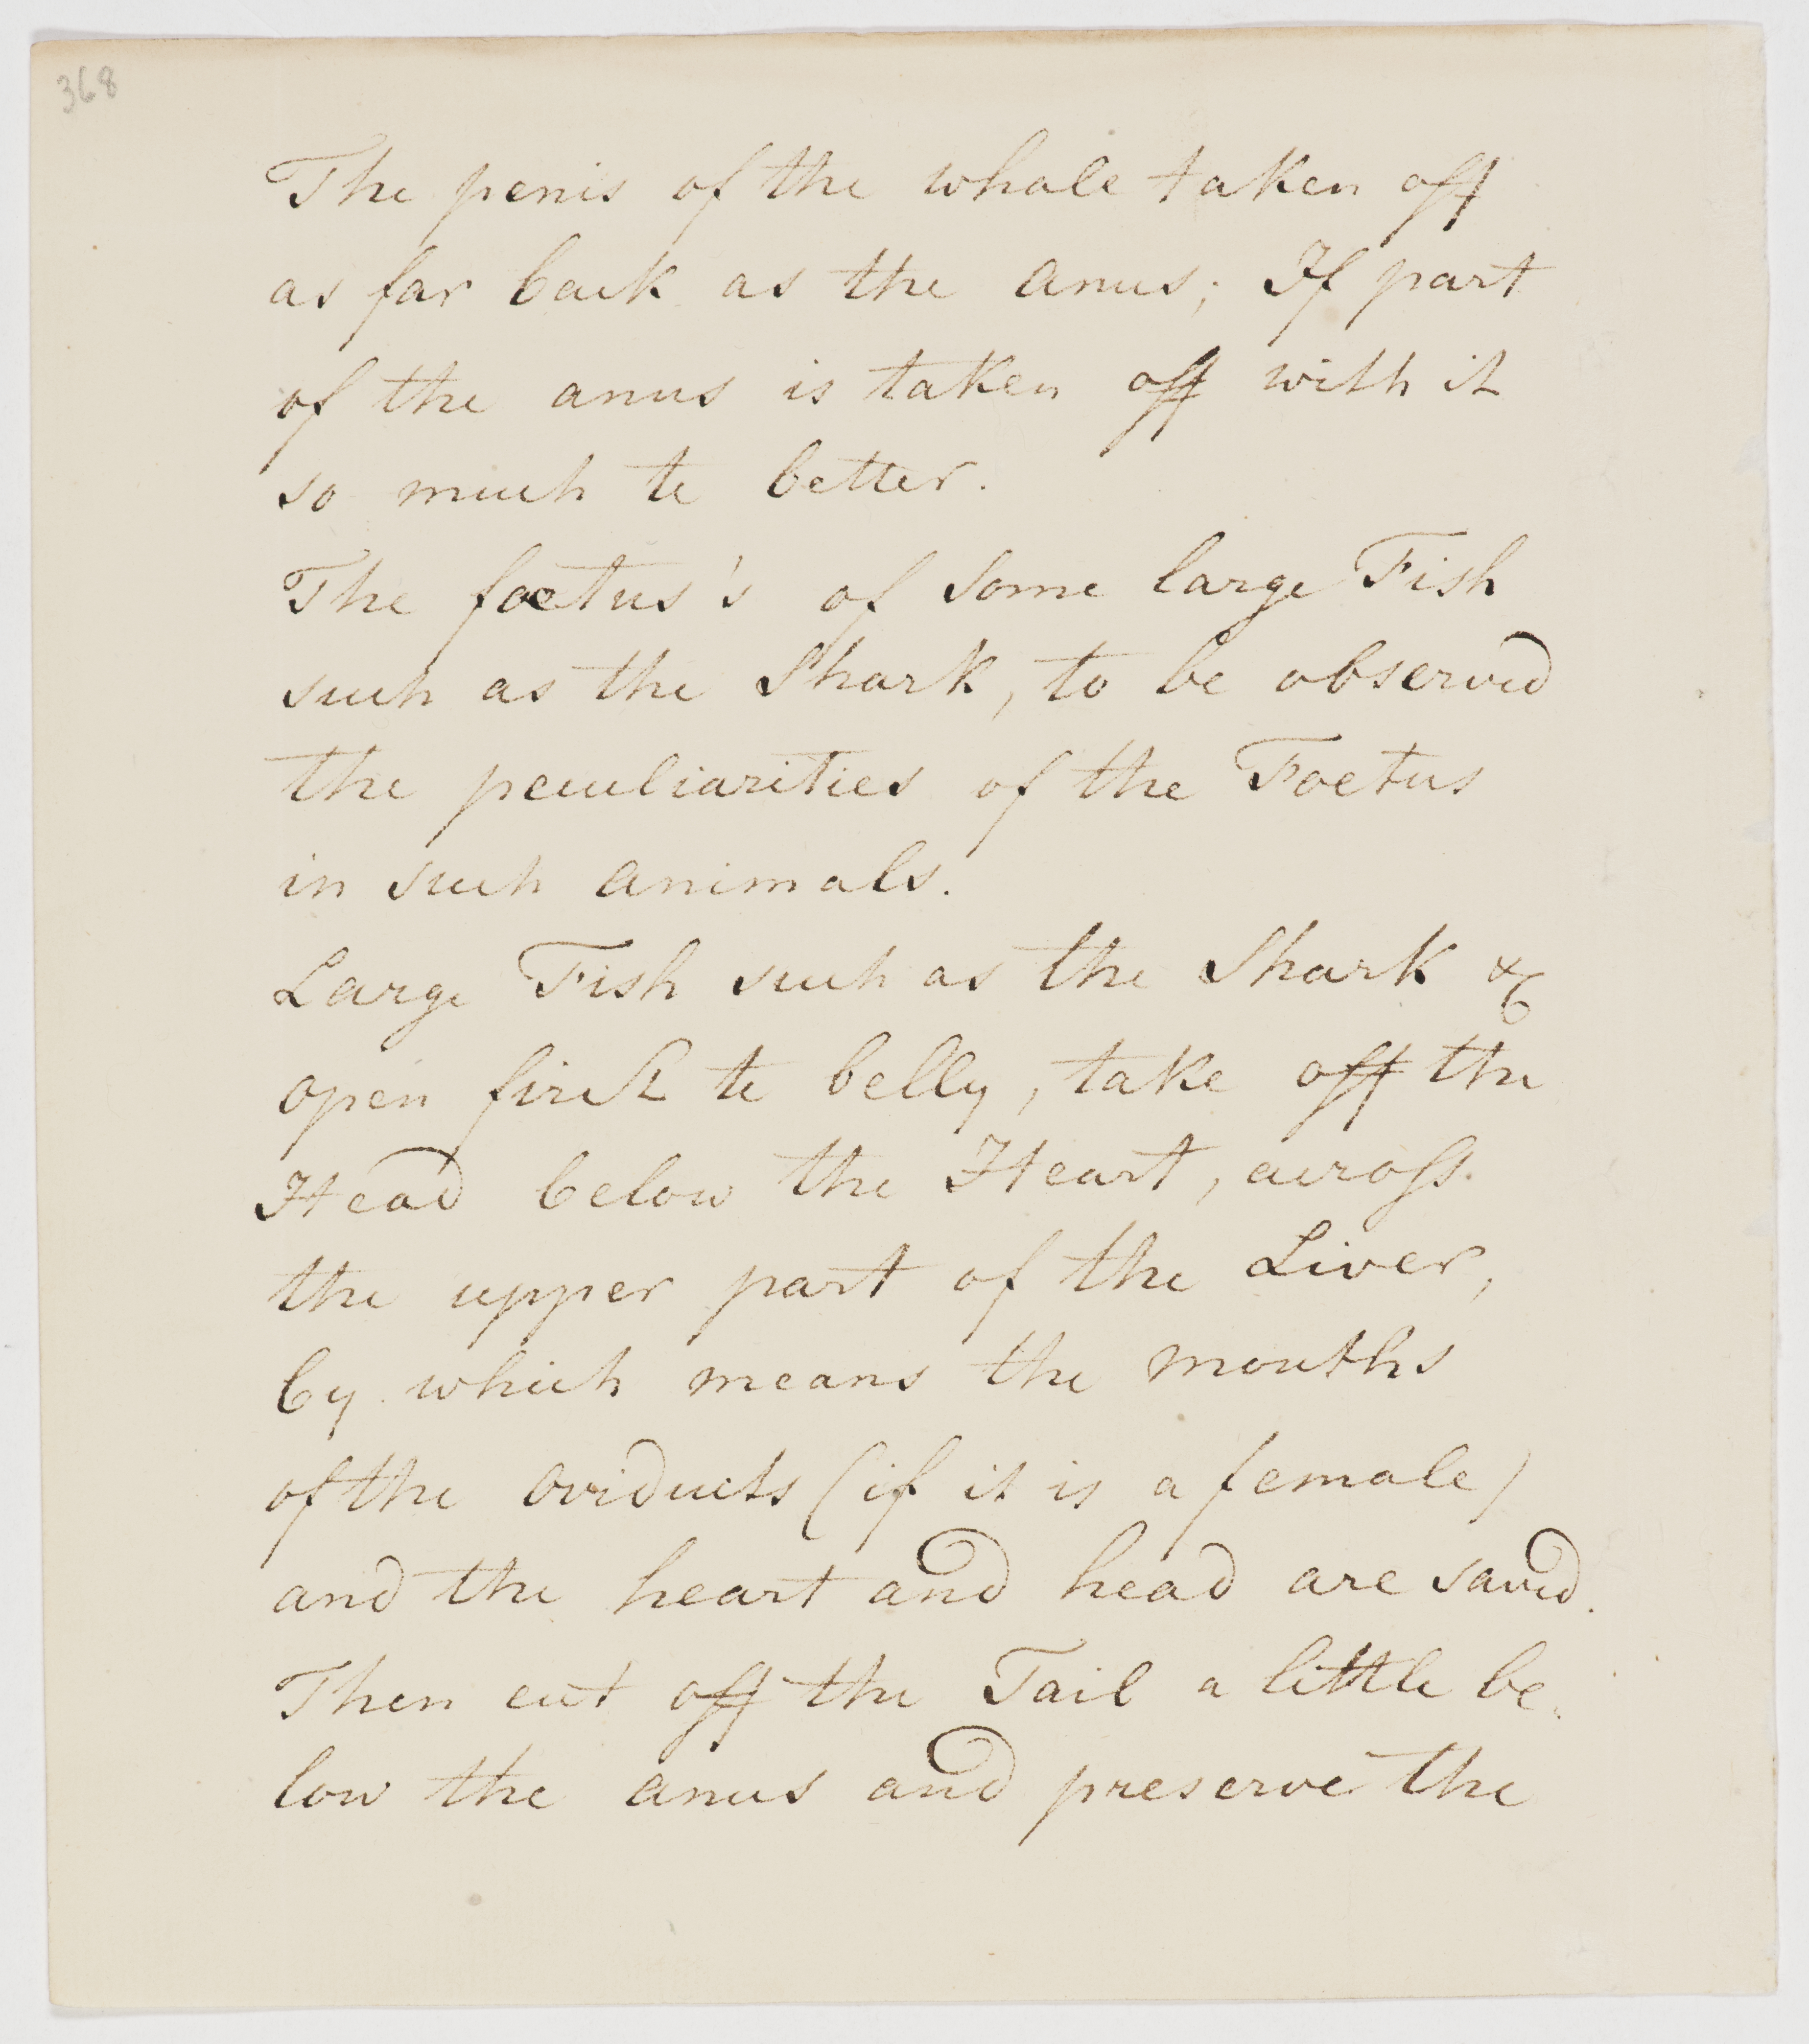 368
The penis of the whale taken off
as far back as the anus; If part
of the anus is taken off with it
so much te better.
The foetus's of some large Fish
such as the Shark, to be observed
the peculiarities of the Foetus
in such animals.
Large Fish such as the Shark &c
open first te belly, take off the
Head below the Heart, across
the upper part of the Liver,
by which means the mouths
of the oviducts (if it is a female)
and the heart and head are saved.
Then cut off the Tail a little be
low the anus and preserve the